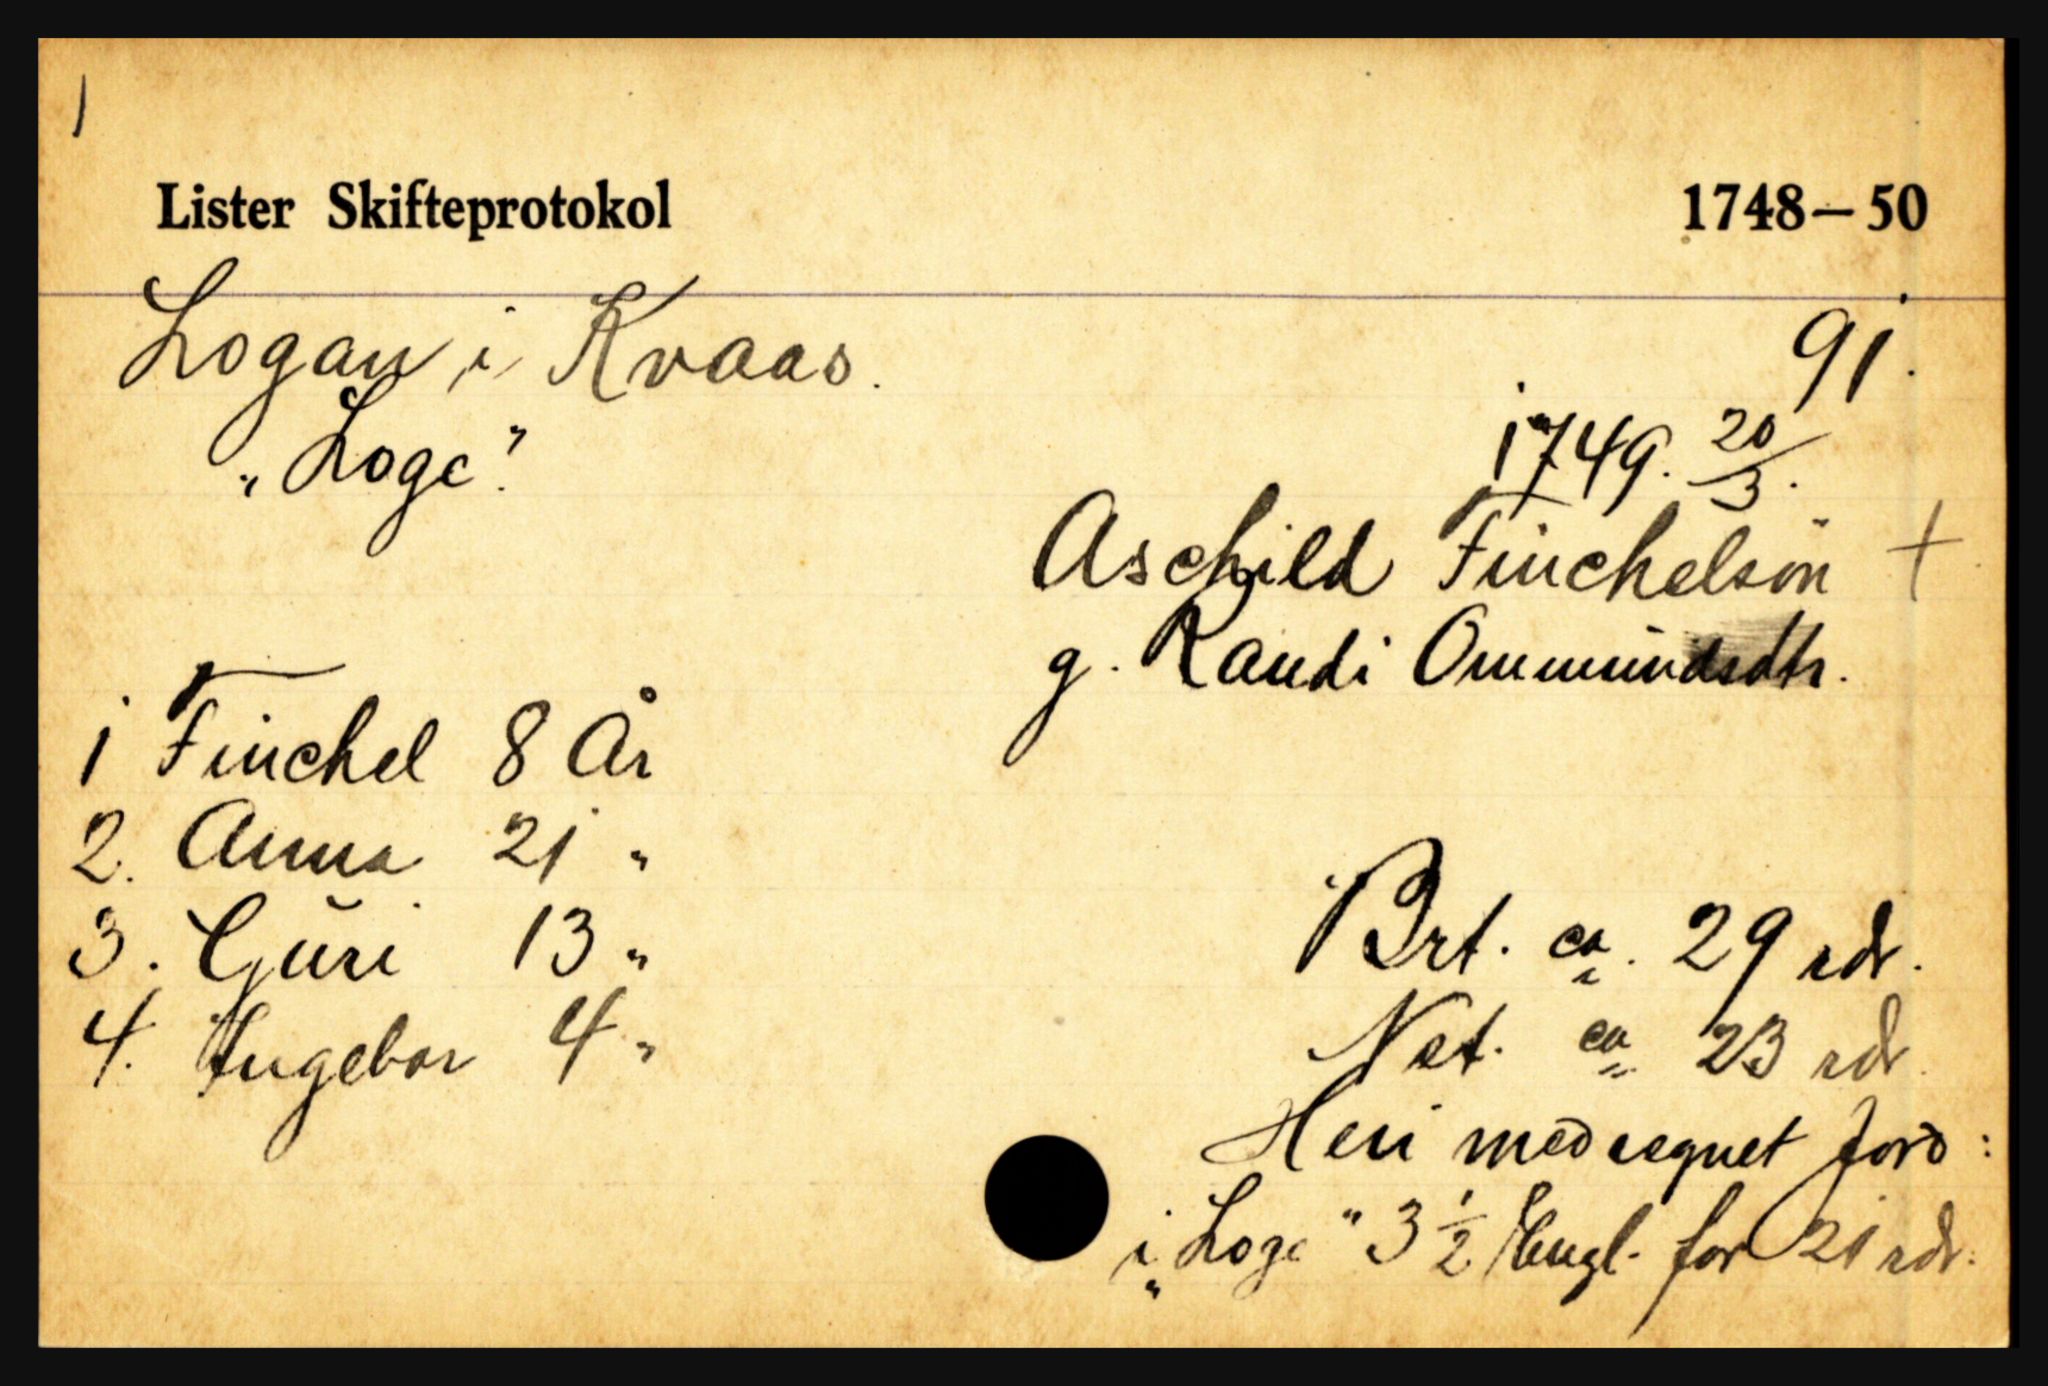 1
Lister Skifteprotokol 1748–50
Logan i Kvaas. 91.
„Loge". 1749. 20/3.
Aschild Finchelsön +
g. Randi Ommundsdtr.
1 Finchel 8 År
2. Anna 21 "
3. Guri 13 "
4. Ingebor 4 "
Brt. ca. 29 rdr.
Net. ca 23 rdr.
Heri medregnet jord:
i „Loge" 3 1/2 Engl. for 21 rdr.